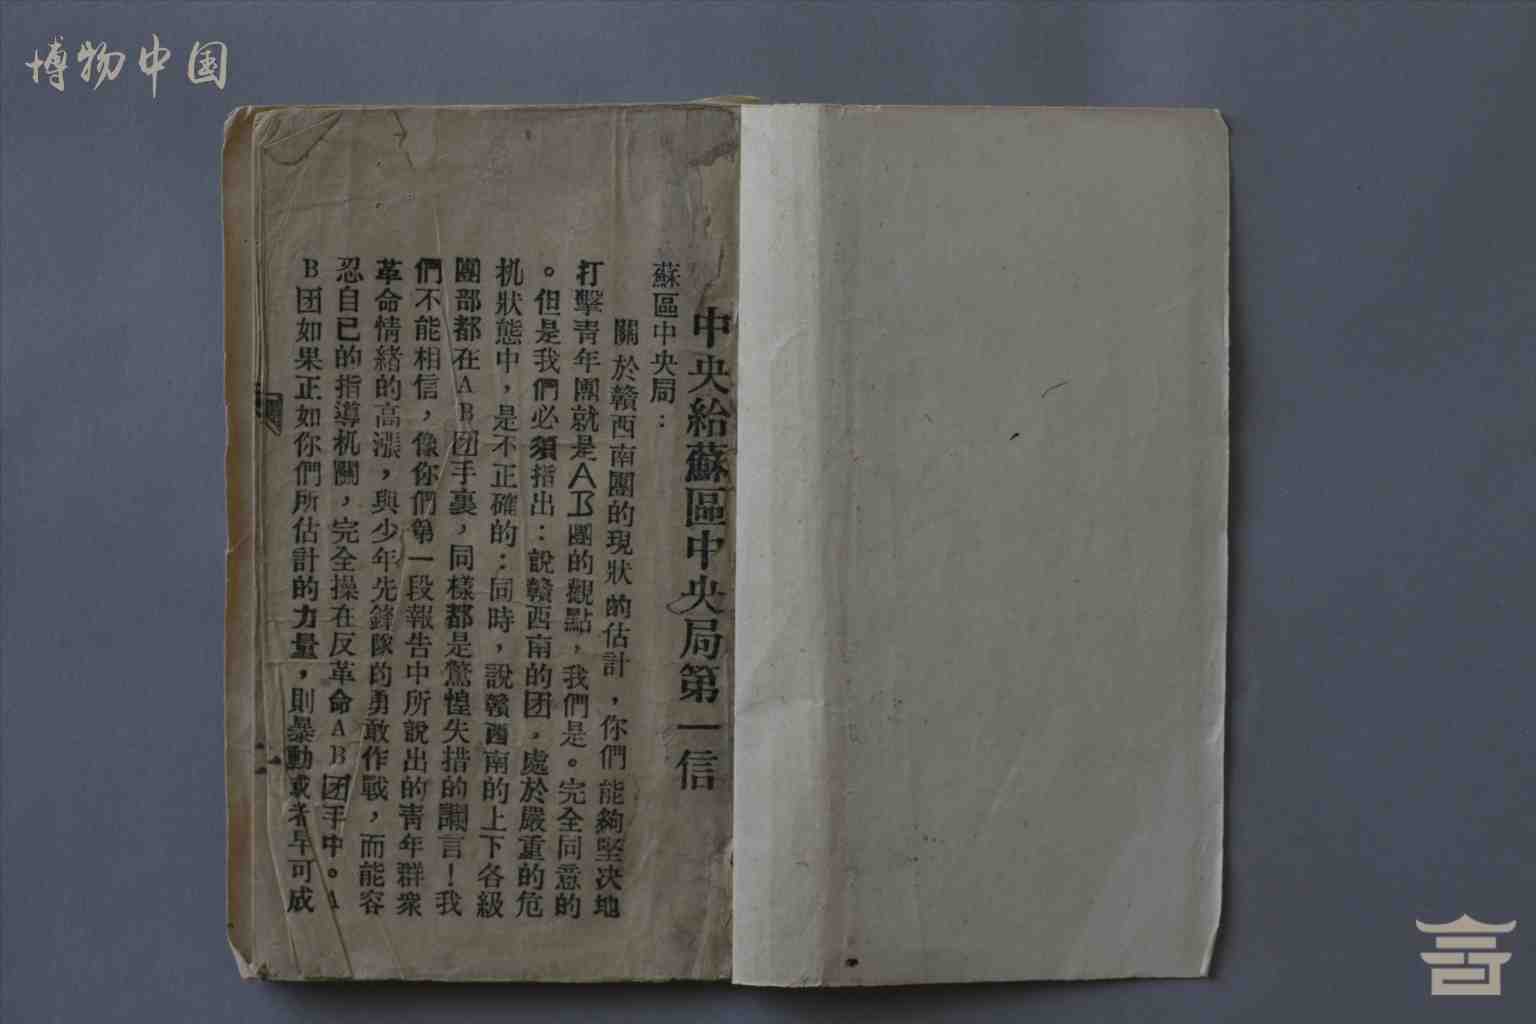 博物中国
中央給蘇區中央局第一信
蘇區中央局：
關於贛西南團的現狀的估計，你們能夠堅决地
打擊青年團就是AB團的觀點，我們是。完全同意的
。但是我們必須指出：說贛西南的团，處於嚴重的危
机狀態中，是不正確的：同時，說贛西南的上下各級
團部都在AB团手裏，同樣都是驚惶失措的讕言！我
們不能相信，像你們第一段報告中所說出的青年群衆
革命情緒的高漲，與少年先鋒隊的勇敢作戰，而能容
忍自已的指導机關，完全操在反革命AB团手中。A
B团如果正如你們所估計的力量，則暴動或者早可成